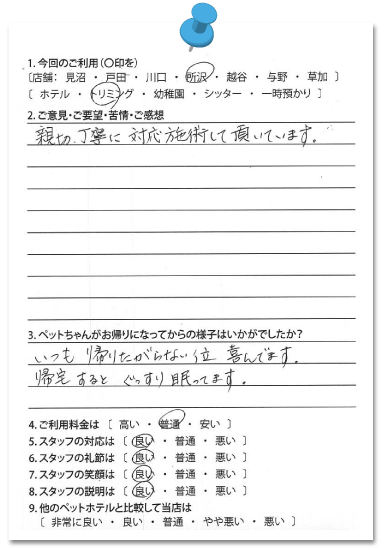 1. 今回のご利用(〇印を)
〔店舗: 見沼 ・ 戸田 ・ 川口 ・ 所沢 ・ 越谷 ・ 与野 ・ 草加 〕
〔 ホテル ・ トリミング ・ 幼稚園 ・ シッター ・ 一時預かり 〕
2. ご意見・ご要望・苦情・ご感想
親切、丁寧に対応施術して頂いています。
3. ペットちゃんがお帰りになってからの様子はいかがでしたか?
いつも帰りたがらない位喜んでます。
帰宅するとぐっすり眠ってます。
4. ご利用料金は 〔 高い ・ 普通 ・ 安い 〕
5. スタッフの対応は 〔 良い ・ 普通 ・ 悪い 〕
6. スタッフの礼節は 〔 良い ・ 普通 ・ 悪い 〕
7. スタッフの笑顔は 〔 良い ・ 普通 ・ 悪い 〕
8. スタッフの説明は 〔 良い ・ 普通 ・ 悪い 〕
9. 他のペットホテルと比較して当店は
〔 非常に良い ・ 良い ・ 普通 ・ やや悪い ・ 悪い 〕